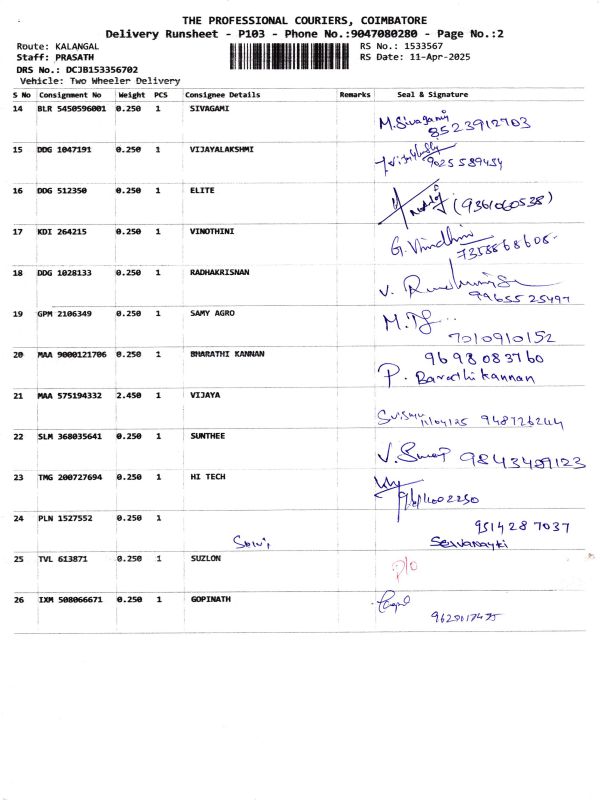 THE PROFESSIONAL COURIERS, COIMBATORE
Delivery Runsheet - P103 - Phone No.:9047080280 - Page No.:2
Route: KALANGAL RS No.: 1533567
Staff: PRASATH RS Date: 11-Apr-2025
DRS No.: DCJB153356702
Vehicle: Two Wheeler Delivery
S No Consignment No Weight PCS Consignee Details Remarks Seal & Signature
14 BLR 5450596001 0.250 1 SIVAGAMI M.Sivagami
8523912703
15 DDG 1047191 0.250 1 VIJAYALAKSHMI
9025589454
16 DDG 512350 0.250 1 ELITE (9361060538)
17 KDI 264215 0.250 1 VINOTHINI G.Vindhini
7358868608
18 DDG 1028133 0.250 1 RADHAKRISNAN V.
9965525497
19 GPM 2106349 0.250 1 SAMY AGRO M.
7010910152
20 MAA 9000121706 0.250 1 BHARATHI KANNAN 9698083760
P. Barathi Kannan
21 MAA 575194332 2.450 1 VIJAYA
11/04/25 9487262144
22 SLM 368035641 0.250 1 SUNTHEE V. 9843489123
23 TMG 200727694 0.250 1 HI TECH
24 PLN 1527552 0.250 1 9514287037
Selvi, Selvanayki
25 TVL 613871 0.250 1 SUZLON D/O
26 IXM 508066671 0.250 1 GOPINATH